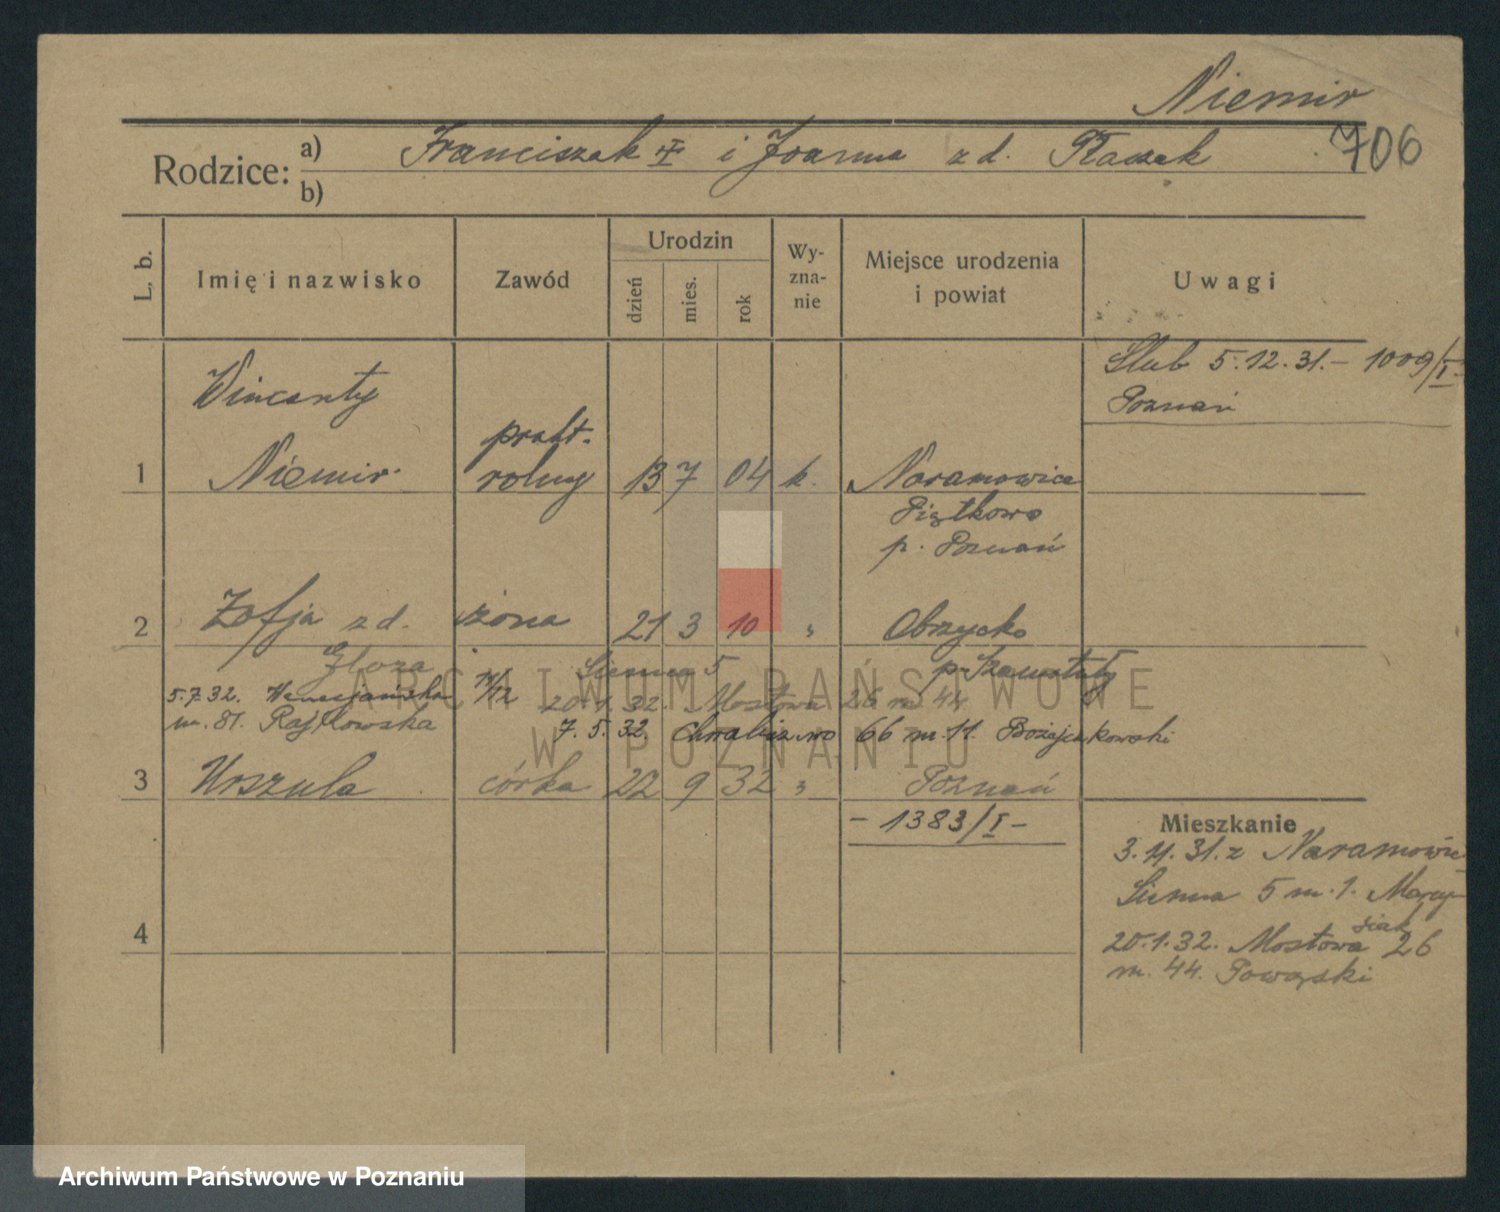 Niemir
706
Rodzice: a) Franciszak i Joanna zd. Ptaszek
b)
L. b.
Imię i nazwisko
Zawód
Urodzin
dzień
mies.
rok
Wy-
zna-
nie
Miejsce urodzenia
i powiat
Uwagi
Ślub 5.12.31.- 1009/I-
Poznań
Wincenty
prakt.
1 Niemir rolny 13 7 04 k. Naramowice
Piątkowo
p. Poznań
2 Zofja zd. żona 21 3 10 " Obrzycko
Głoza Sienna 5 p. Szamotuły
5.7.32. Wenecjańska 11/12 20.1.32. Mostowa 26 m 44
m. 81. Rajkowska 7. 5. 32. 66 m. 11.
3 Urszula córka 22 9 32 " Poznań
- 1383/I -
Mieszkanie
3.11.31. z Naramowic
Sienna 5 m. 1.
20.1.32. Mostowa 26
m. 44.
4
ARCHIWUM PAŃSTWOWE
W POZNANIU
Archiwum Państwowe w Poznaniu